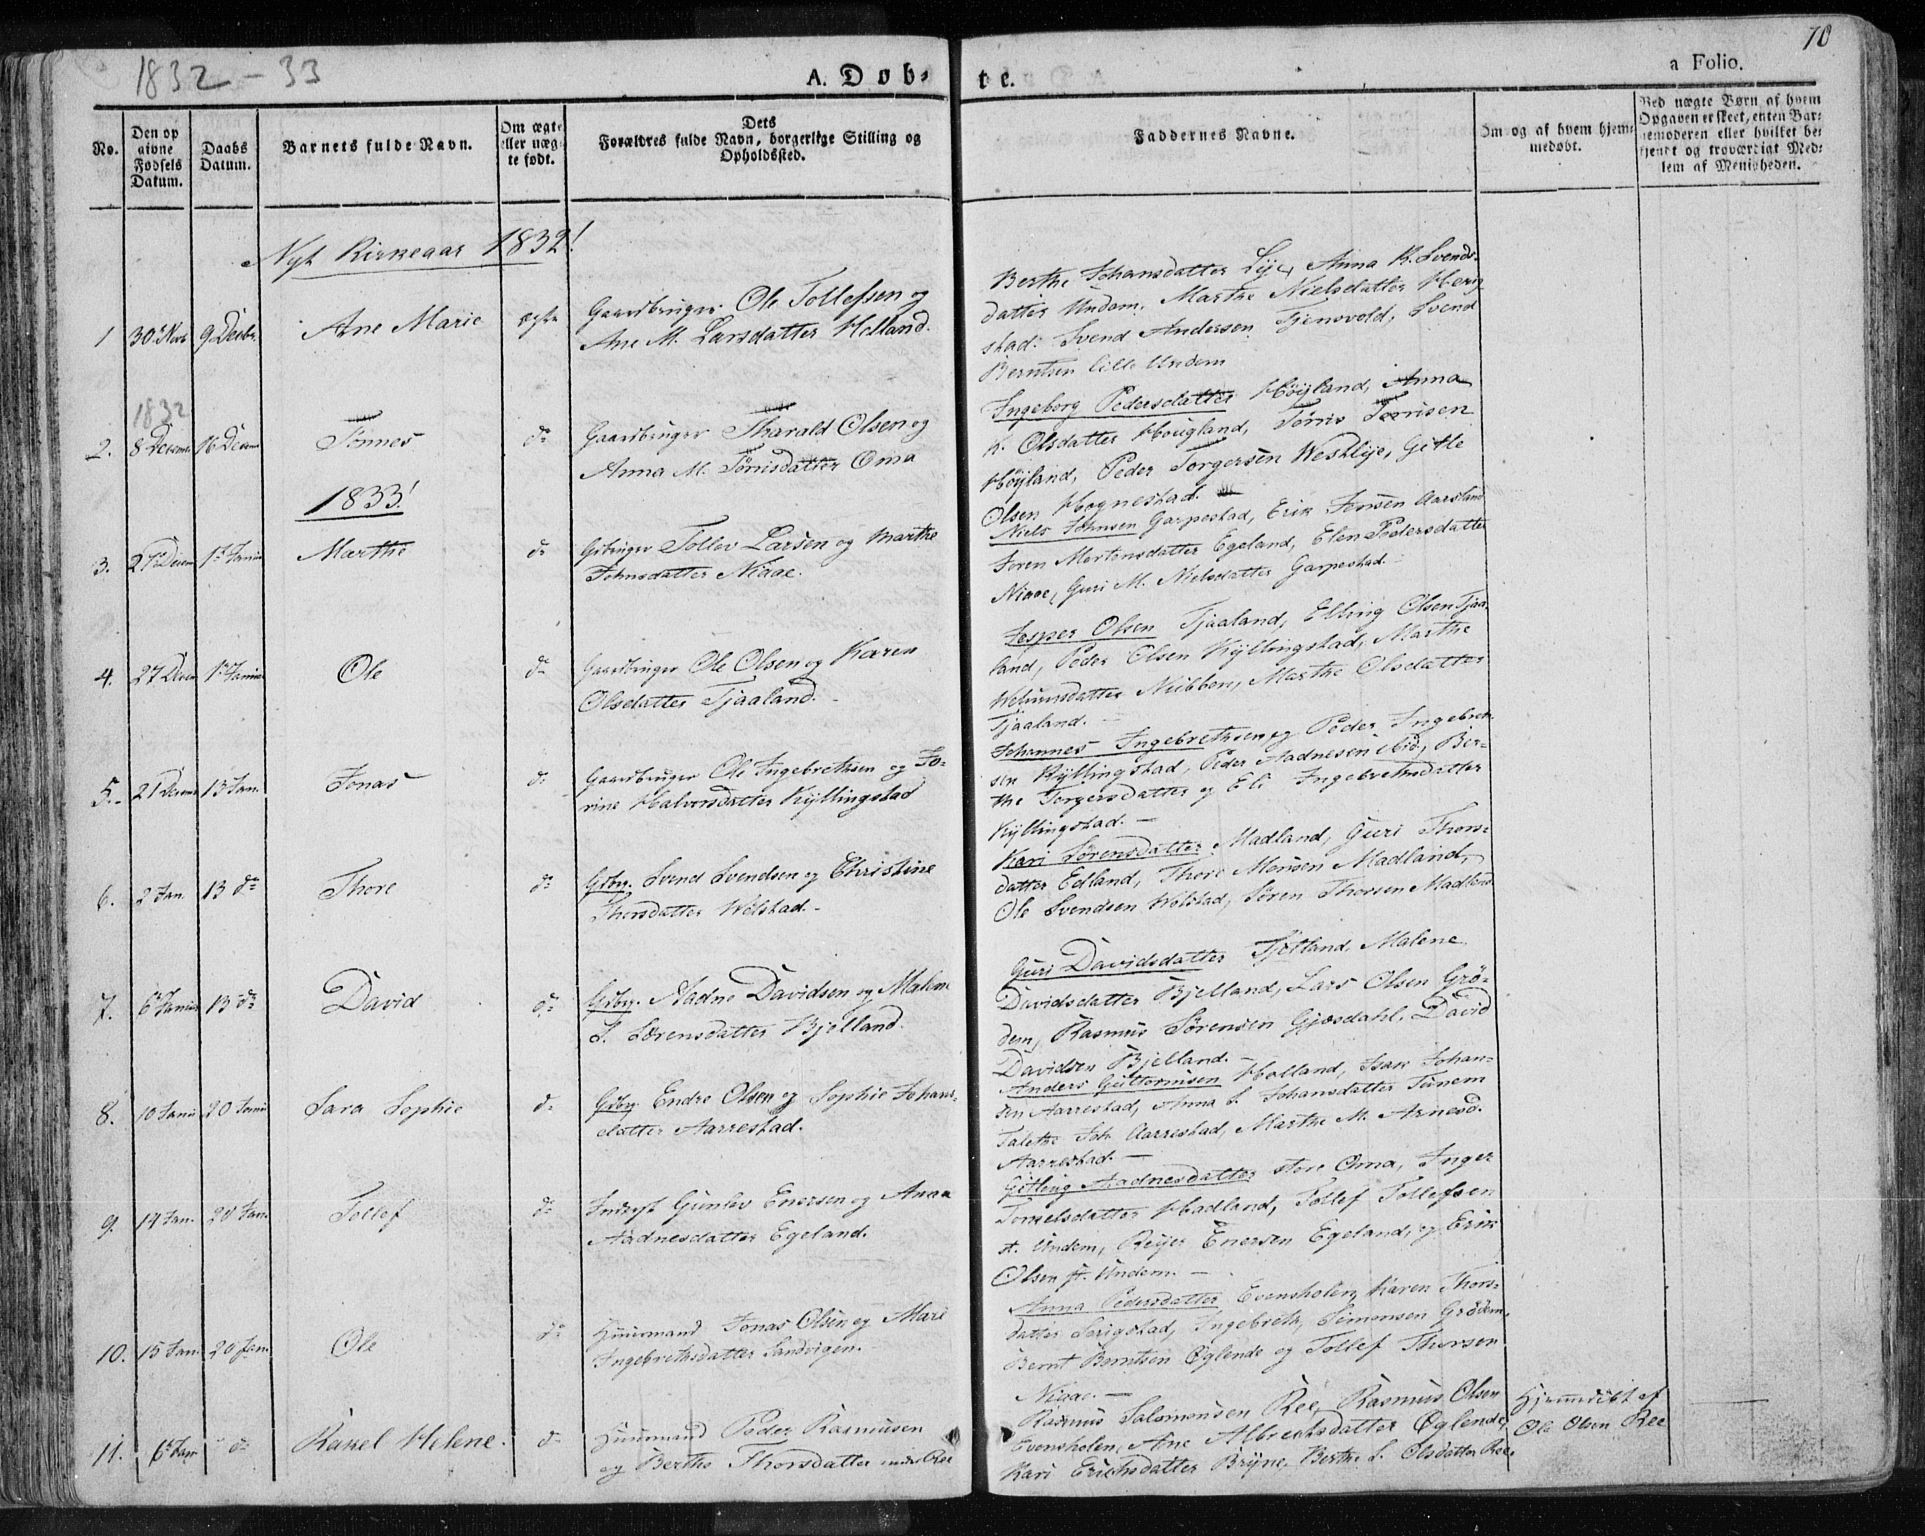 1832 - 33
A. Døb-
te.
70
a Folio.
No.
Den op
givne
Fødsels
Datum.
Daabs
Datum.
Barnets fulde Navn.
Om ægte
eller uæg-
te født.
Dets
Forældres fulde Navn, borgerlige Stilling og
Opholdssted.
Faddernes Navne.
Om og af hvem hjem-
medøbt.
Ved uægte Børn af hvem
Opgaven er skeet, enten Bar-
nemoderen eller hvilket be-
kjendt og troværdigt Med-
lem af Menigheden.
Nyt Kirkeaar 1832!
1
30 Nov
9 Decbr.
Ane Marie
ægte
Gaardbruger Ole Tollefsen og
Ane M. Larsdatter Helland.
Berthe Johansdatter Lye, Anna K. Svends-
datter Undem, Marthe Nielsdatter Hern
stad. Svend Andersen Tjensvold, Svend
Berntsen lille Undem
1832
2.
8 Decem
16 Decem
Tönnes
do
Gaardbruger Tharald Olsen og
Anna M. Tönisdatter Oma
Ingeborg Pedersdatter Höyland, Anna
K. Olsdatter Hougland, Tönis Tönisen
Höyland, Peder Torgersen Westlye, Gitle
Olsen Hognestad.
1833!
3.
21 Decem
1 Januar
Marthe
do
Gbruger Tollev Larsen og Marthe
Johnsdatter Niaae.
Niels Johnsen Garpestad, Erik Jensen Aarsland
Soren Mortensdatter Egeland, Elen Pedersdatter
Niaae, Guri M. Nielsdatter Garpestad.
4.
27 Decem
1 Januar
Ole
do
Gaardbruger Ole Olsen og Karen
Olsdatter Tjaaland.
Jesper Olsen Tjaaland, Elling Olsen Tjaa-
land, Peder Olsen Kyllingstad, Marthe
Nubben, Marthe Olsdatter
Tjaaland.
5.
21 Decem
13 Jan.
Jonas
do
Gaardbruger Ole Ingebrethsen og Jo-
rine Halvorsdatter Kyllingstad
Johannes Ingebrethsen og Peder Ingebret-
sen Kyllingstad, Peder Aadnesen ibid, Ber-
the Torgersdatter og Eli Ingebrethsdatter
Kyllingstad.
6.
2 Jan
13 do
Thore
do
Gdbr. Svend Svendsen og Christine
Thorsdatter Wölstad.
Kari Sörensdatter Madland, Guri Thors-
datter Edland, Thore Monsen Madland,
Ole Svendsen Wolstad, Sören Thorsen Madland
7.
6 Januar
13 do
David
do
Gdbr. Aadne Davidsen og Malene
S. Sörensdatter Bjelland.
Guri Davidsdatter Tjetland, Malene
Davidsdatter Bjelland, Lars Olsen Grö-
dem, Rasmus Sörensen Gjæsdahl, David
Davidsen Bjelland.
8.
10 Janu
20 Janu
Sara Sophie
do
Gdbr. Endre Olsen og Sophie Johans-
datter Aarrestad.
Anders Guttormsen Holland, Isak Johan-
sen Aarrestad, Anna S. Johansdatter Tunem
Talethe Joh Aarrestad, Marthe M. Arnesd.
Aarrestad.
9.
14 Jan.
20 Jan.
Tollef
do
Inderst Gunlev Enersen og Anna
Aadnesdatter Egeland.
Gitleug Aadnesdatter store Oma, Inger
Tonnelsdatter Hadland, Tollef Tollefsen
st. Undem, Reyer Enersen Egeland, og Erik
Olsen st. Undem.
10.
15 Jan.
20 Jan.
Ole
do
Huusmand Jonas Olsen og Mari
Ingebrethsdatter Sandvigen.
Anna Pedersdatter, Evensholen, Karen Thors-
datter Serigstad, Ingebreth Simonsen Grödem,
Bernt Berntsen Öglende og Tollef Thorsen
Niaae.
11.
6 Jan
do
Rakel Helene.
do
Huusmand Peder Rasmussen
og Berthe Thorsdatter under Ree
Rasmus Salomonsen Ree, Rasmus Olsen
Evensholen, Ane Albrechtsdatter Öglende,
Kari Erichsdatter Bryne, Berthe S. Olsdatter Ree.
Hjemmedöbt af
Ole Olsen Ree